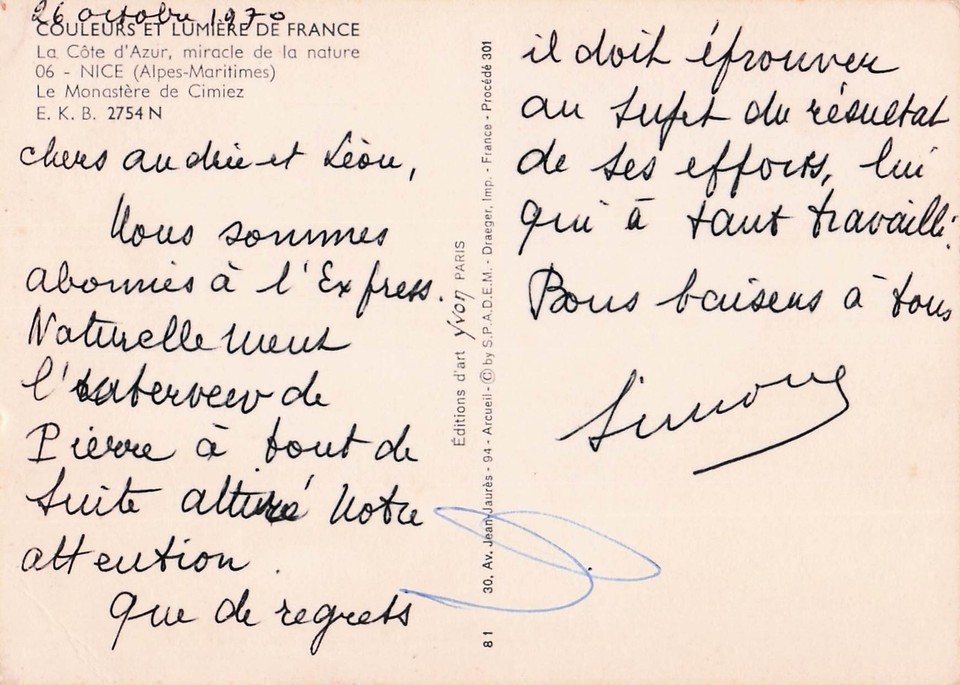 26 octobre 1970
COULEURS ET LUMIÈRE DE FRANCE
La Côte d'Azur, miracle de la nature
06 - NICE (Alpes-Maritimes)
Le Monastère de Cimiez
E. K. B. 2754 N
chers andrée et Léon,
Nous sommes
abonnés à l'Express.
Naturellement
l'interview de
Pierre à tout de
suite attiré notre
attention.
que de regrets
Éditions d'art yvon PARIS
81 30, Av. Jean-Jaurès - 94 - Arcueil - © by S.P.A.D.E.M. - Draeger, Imp. - France - Procédé 301
il doit éprouver
au sujet du résultat
de ses efforts, lui
qui à tant travaillé.
Bons baisers à tous
Simone